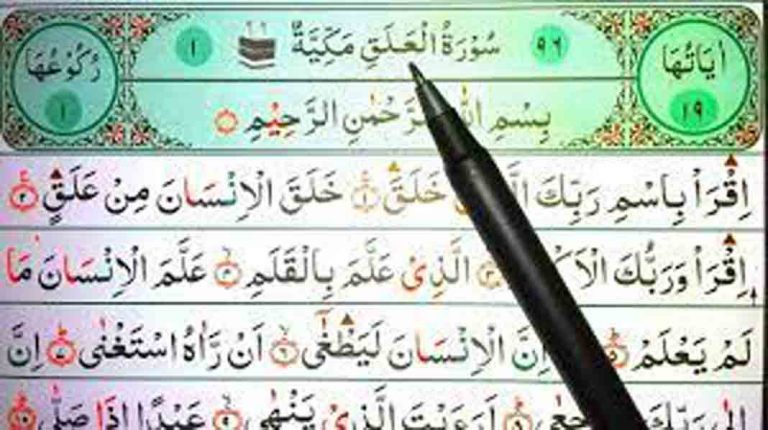 اٰيَاتُهَا ١٩
٩٦ سُوْرَةُ الْعَلَقِ مَكِّيَّةٌ ١
رُكُوْعُهَا ١
بِسْمِ اللّٰهِ الرَّحْمٰنِ الرَّحِيْمِ
اِقْرَاْ بِاسْمِ رَبِّكَ خَلَقَ ١ خَلَقَ الْاِنْسَانَ مِنْ عَلَقٍ ٢
اِقْرَاْ وَرَبُّكَ ٣ الَّذِىْ عَلَّمَ بِالْقَلَمِ ٤ عَلَّمَ الْاِنْسَانَ مَا
لَمْ يَعْلَمْ ٥ اِنَّ الْاِنْسَانَ لَيَطْغٰٓى ٦ اَنْ رَّاٰهُ اسْتَغْنٰى ٧ اِنَّ
اِلٰى رَبِّكَ ٨ اَرَءَيْتَ الَّذِىْ يَنْهٰى ٩ عَبْدًا اِذَا صَلّٰى ١٠